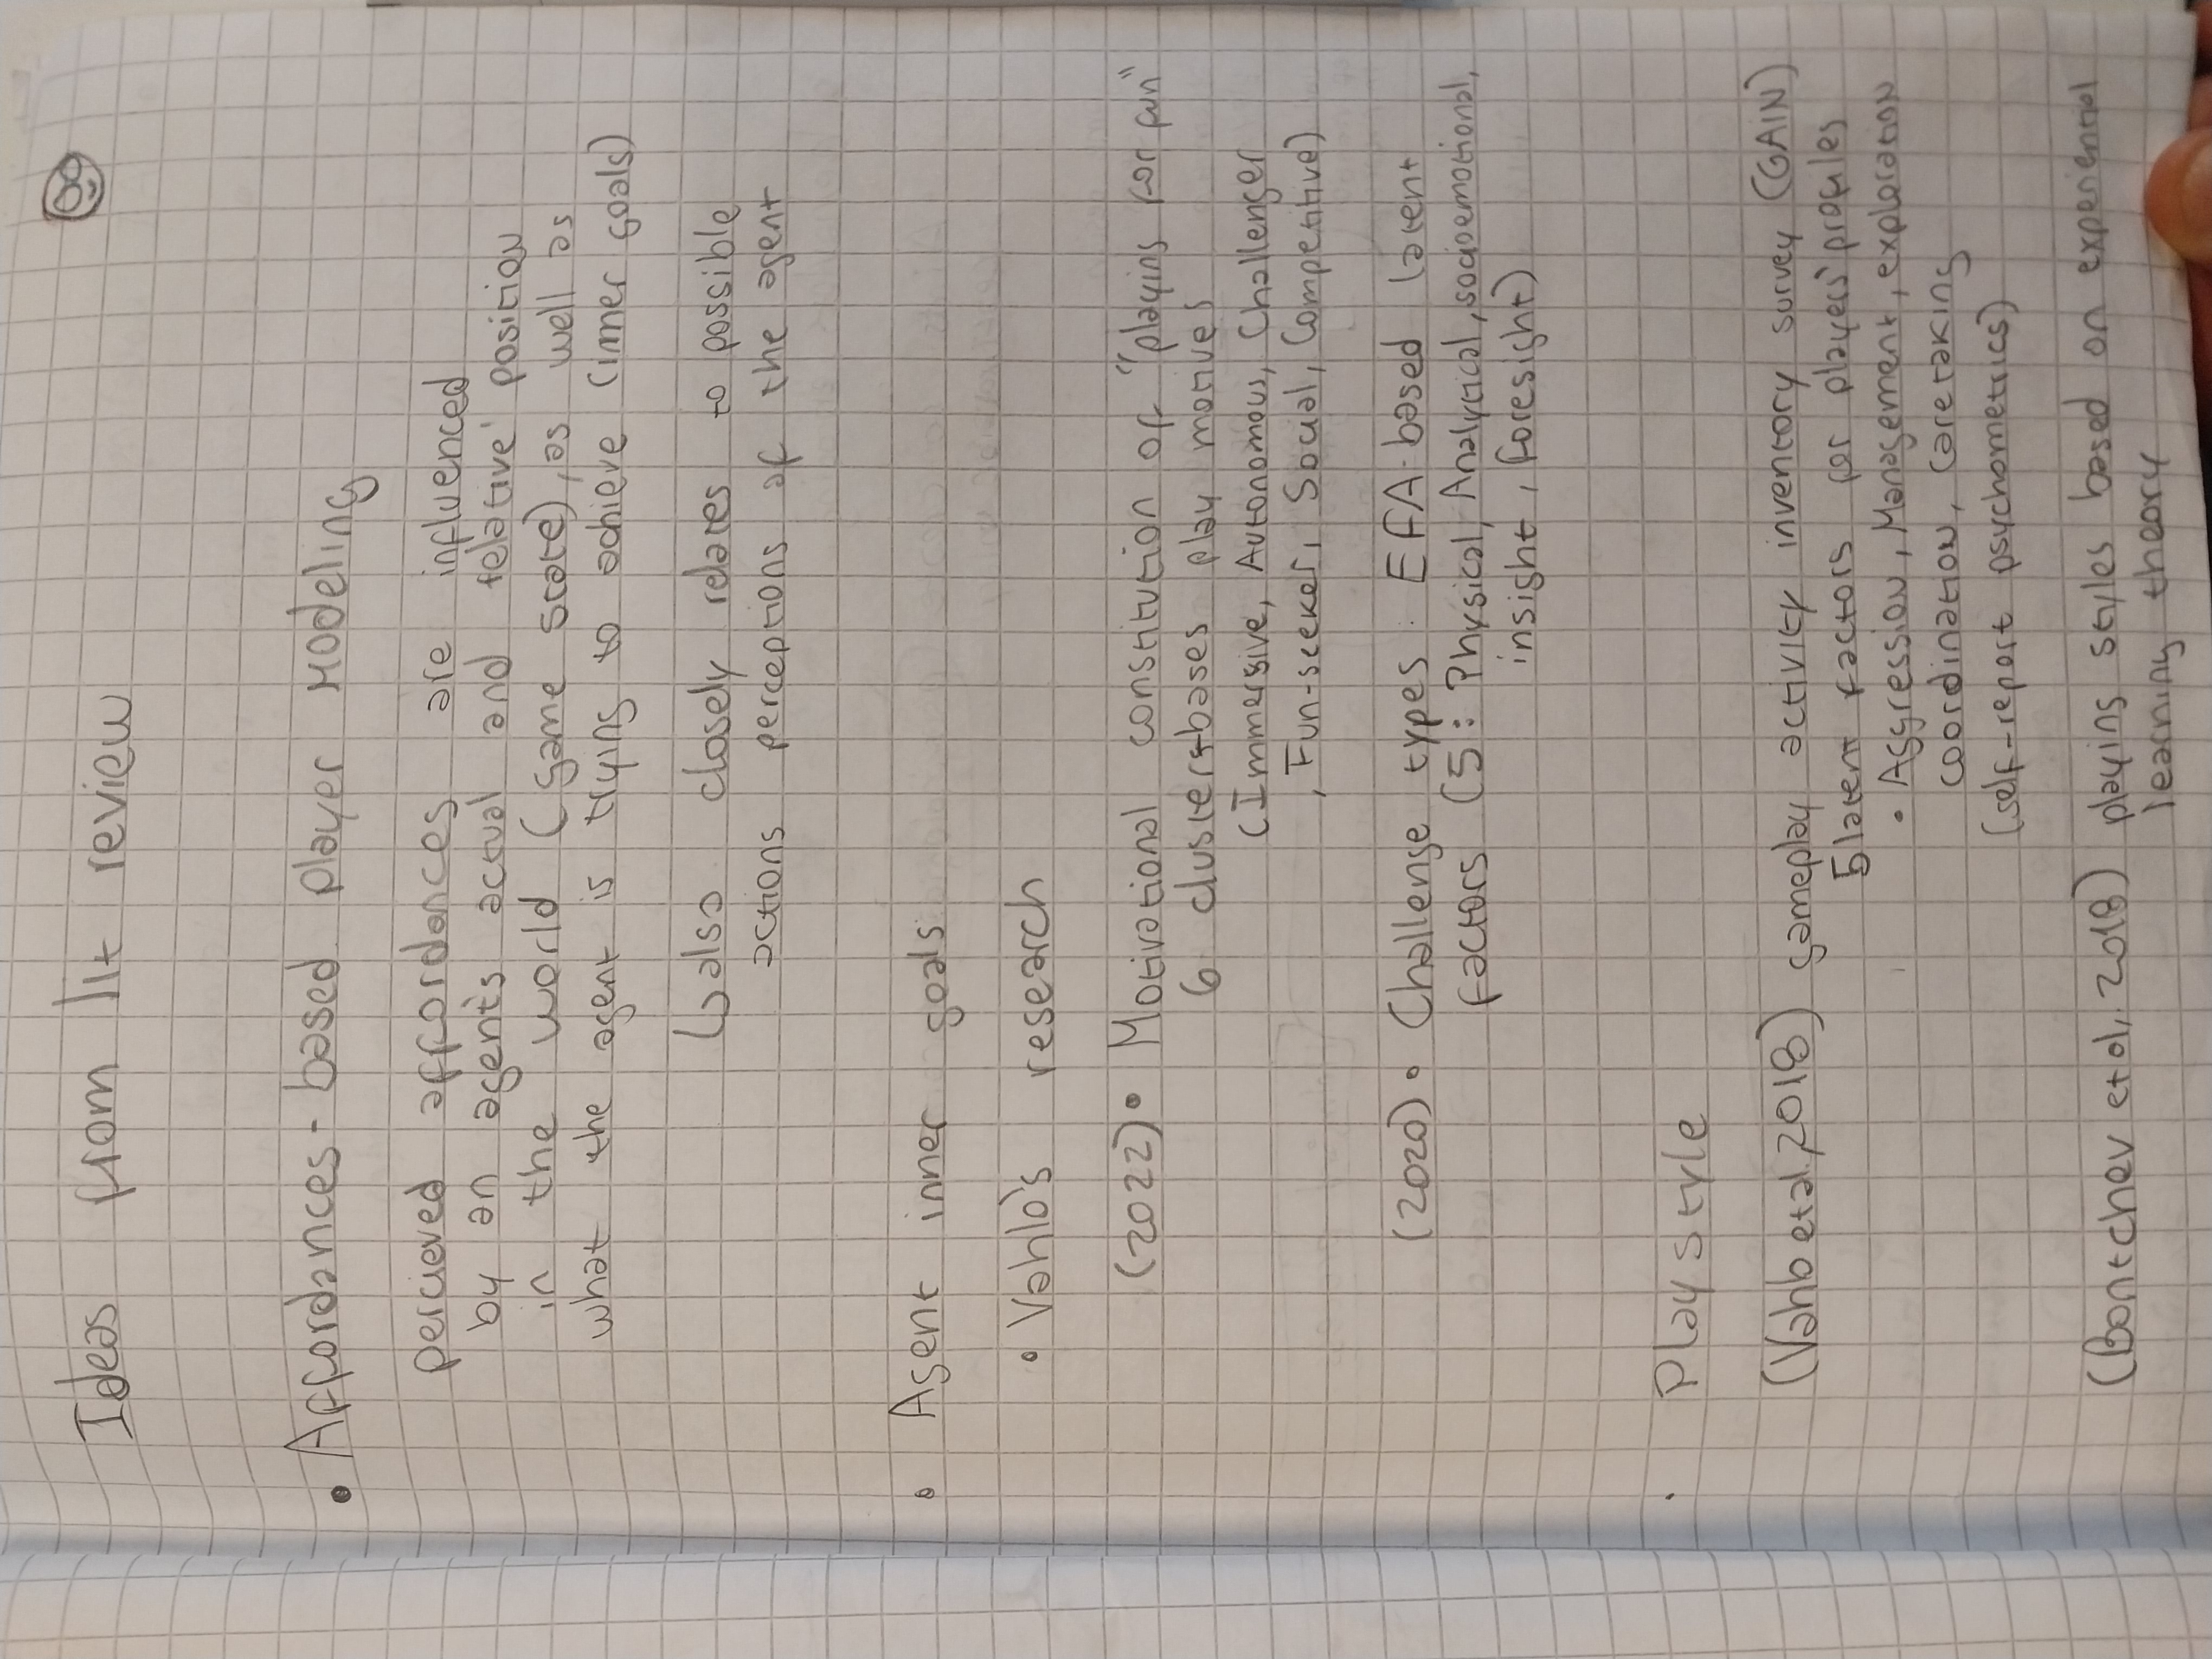 Ideas from lit review
• Affordances-based player modeling
percieved affordances are influenced
by an agent's actual and relative position
in the world (game state), as well as
what the agent is trying to achieve (inner goals)
↳ also closely relates to possible
actions perceptions of the agent
• Agent inner goals
• Vahlo's research
(2022) • Motivational constitution of "playing for fun"
6 clusters-bases play motives
(Immersive, Autonomous, Challenger
, Fun-seeker, Social, Competitive)
(2020) • Challenge types: EFA-based latent
factors (5: Physical, Analytical, socioemotional,
insight, foresight)
• Play style
(Vahlo et al., 2018) gameplay activity inventory survey (GAIN)
5 latent factors for players' profiles
• Aggression, Management, exploration
coordination, caretaking
(self-report psychometrics)
(Bontchev et al., 2018) playing styles based on experiential
learning theory